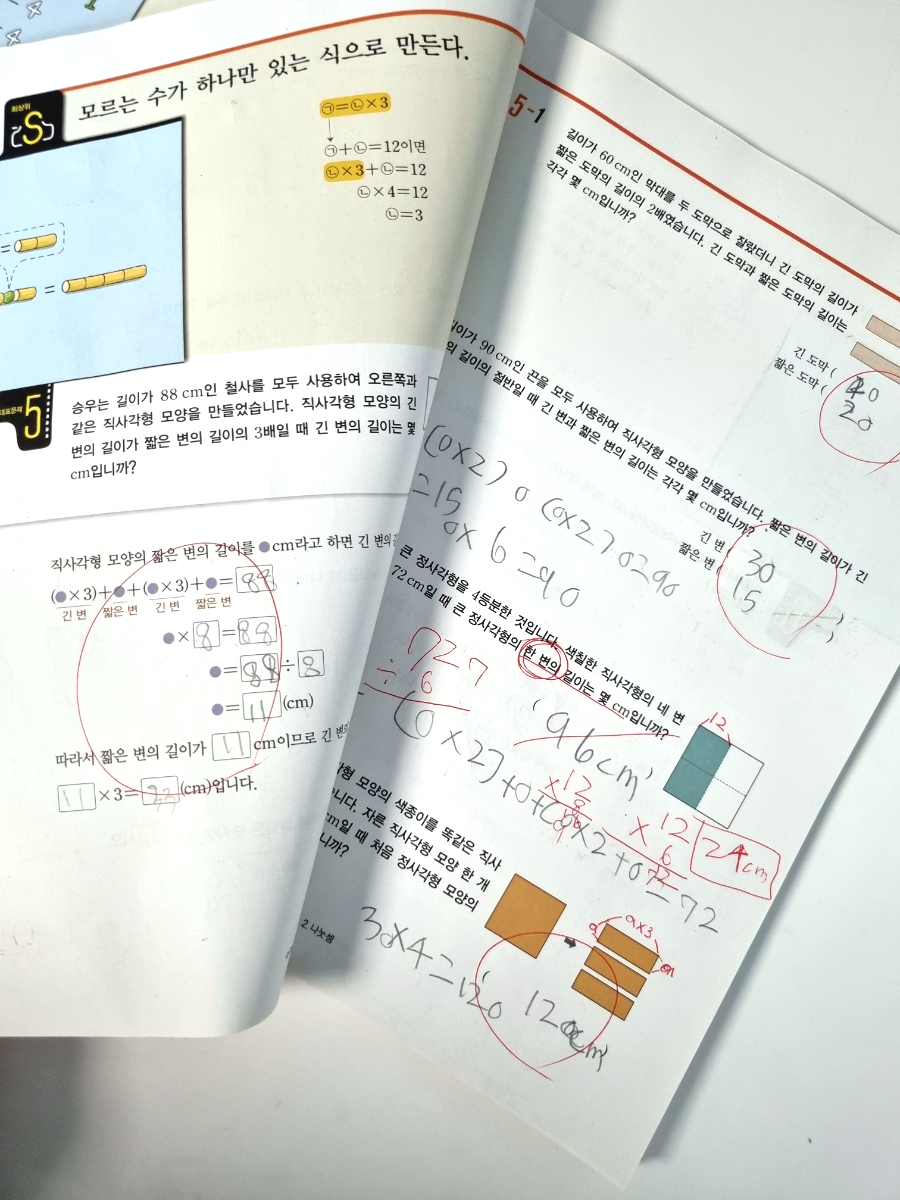 모르는 수가 하나만 있는 식으로 만든다.
최상위
S
㉠=㉡×3
㉠+㉡=12이면
㉡×3+㉡=12
㉡×4=12
㉡=3
=
=
대표문제
5
승우는 길이가 88 cm인 철사를 모두 사용하여 오른쪽과
같은 직사각형 모양을 만들었습니다. 직사각형 모양의 긴
변의 길이가 짧은 변의 길이의 3배일 때 긴 변의 길이는 몇
cm입니까?
직사각형 모양의 짧은 변의 길이를 ●cm라고 하면 긴 변의
(●×3)+●+(●×3)+●=88
긴 변 짧은 변 긴 변 짧은 변
●×8=88
●=88÷8
●=11(cm)
따라서 짧은 변의 길이가 11 cm이므로 긴 변의
11×3=33(cm)입니다.
5-1
길이가 60 cm인 막대를 두 도막으로 잘랐더니 긴 도막의 길이가
짧은 도막의 길이의 2배였습니다. 긴 도막과 짧은 도막의 길이는
각각 몇 cm입니까?
긴 도막 ( 40
짧은 도막 ( 20
길이가 90 cm인 끈을 모두 사용하여 직사각형 모양을 만들었습니다. 짧은 변의 길이가 긴
의 길이의 절반일 때 긴 변과 짧은 변의 길이는 각각 몇 cm입니까?
긴 변 ( 30
짧은 변 ( 15 )
(0×2)0(0×2)0=90
=15
0×6=90
큰 정사각형을 4등분한 것입니다. 색칠한 직사각형의 네 변
72 cm일 때 큰 정사각형의 한 변의 길이는 몇 cm입니까?
727
÷6
96cm
12
(0×2)+0+(0×2+0=72
×12
8
96
12
×6
72
24cm
각형 모양의 색종이를 똑같은 직사
니다. 자른 직사각형 모양 한 개
cm일 때 처음 정사각형 모양의
니까?
2 나눗셈
30×4=120
120cm
a×3
a
a